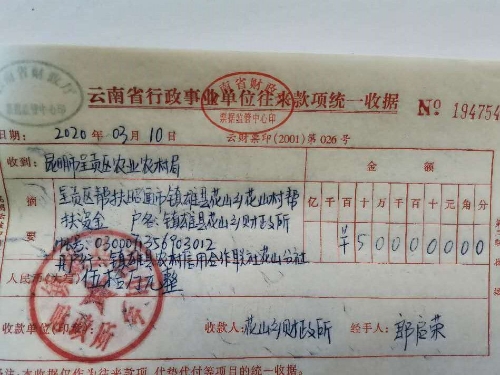 云南省财政厅
票据监管中心印
云南省行政事业单位往来款项统一收据
云南省财政厅
票据监管中心印
No 194754
日期: 2020 年 03 月 10 日 云财票印(2001)第026号
收到: 昆明市呈贡区农业农村局 金额
摘要 呈贡区帮扶昭通市镇雄县花山乡花山村帮 亿 千 百 十 万 千 百 十 元 角 分
扶资金 户名:镇雄县花山乡财政所 ¥ 5 0 0 0 0 0 0 0
开户行:镇雄县农村信用合作联社花山分社
人民币 伍拾万元整
财政所
收款单位 收款人: 花山乡财政所 经手人:
注:本收据仅作为往来款项、代垫代付等项目的统一收据